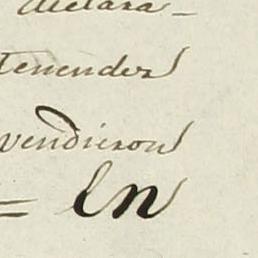 declara-
Tenender
vendieron
= En